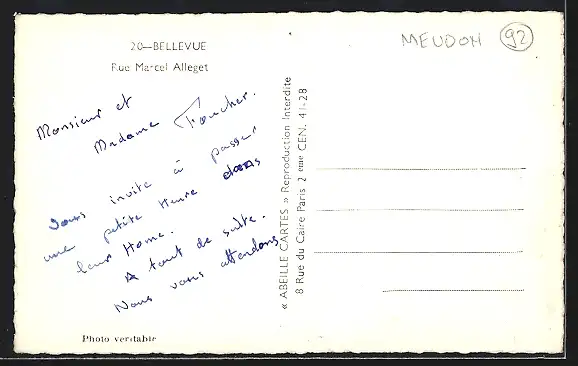 20—BELLEVUE
Rue Marcel Alleget
MEUDON 92
Monsieur et
Madame Foucher.
Vous invite à passer
une petite Heure dans
leur Home.
A tout de suite.
Nous vous attendons
« ABEILLE CARTES » Reproduction Interdite
8 Rue du Caire Paris 2 eme CEN. 41-28
Photo veritable